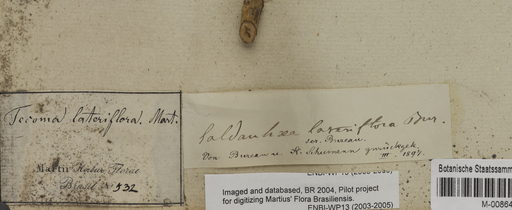 Tecoma lateriflora. Mart.
Martii Herbar. Florae
Brasil. № 532
Saldanhaea lateriflora Bur.
scr. Bureau.
Von Bureau u. K. Schumann zurückgek.
III. 1897.
ENBI-WP13 (2003-2005)
Imaged and databased, BR 2004, Pilot project
for digitizing Martius' Flora Brasiliensis.
ENBI-WP13 (2003-2005)
Botanische Staatssamm
M-00864